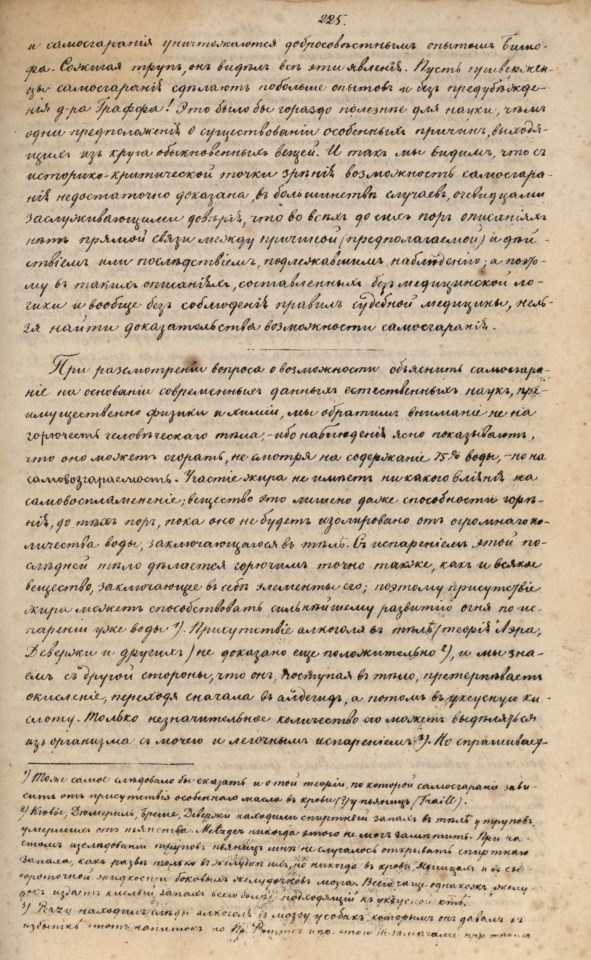 225.
и самосгаранія уничтожаются добросовѣстнымъ опытомъ Бишо-
фа. Сожигая трупъ, онъ видѣлъ всѣ эти явленія. Пусть привержен-
цы самосгаранія сдѣлаютъ побольше опытовъ и безъ предубѣжде-
нія д-ра Граффа! Это было бы гораздо полезнѣе для науки, чѣмъ
одни предположенія о существованіи особенныхъ причинъ, выходя-
щихъ изъ круга обыкновенныхъ вещей. И такъ мы видимъ, что съ
историко-критической точки зрѣнія возможность самосгара-
нія недостаточно доказана, въ большинствѣ случаевъ, очевидцами
заслуживающими довѣрія, что во всѣхъ до сихъ поръ описаніяхъ
нѣтъ прямой связи между причиной (предполагаемой) и дѣй-
ствіемъ или послѣдствіемъ, подлежавшимъ наблюденію; а поэто-
му въ такихъ описаніяхъ, составленныхъ безъ медицинской ло-
гики и вообще безъ соблюденія правилъ судебной медицины, нель-
зя найти доказательства возможности самосгаранія.
При разсмотреніи вопроса о возможности объяснить самосгара-
ніе на основаніи современныхъ данныхъ естественныхъ наукъ, пре-
имущественно физики и химіи, мы обратимъ вниманіе не на
горючесть человѣческаго тѣла, – ибо наблюденія ясно показываютъ,
что оно можетъ сгорать, не смотря на содержаніе 75% воды, – но на
самовозгараемость. Участіе жира не имѣетъ никакого вліянія на
самовоспламененіе; вещество это лишено даже способности горѣ-
нія, до тѣхъ поръ, пока оно не будетъ изолировано отъ огромнаго ко-
личества воды, заключающагося въ тѣлѣ. Съ испареніемъ этой по-
слѣдней тѣло дѣлается горючимъ точно также, какъ и всякое
вещество, заключающее въ себѣ элементы его; поэтому присутствіе
жира можетъ способствовать сильнѣйшему развитію огня по ис-
пареніи уже воды ¹). Присутствіе алкоголя въ тѣлѣ (теорія Лэра,
Девержи и другихъ) не доказано еще положительно ²), и мы зна-
емъ съ другой стороны, что онъ, поступая въ тѣло, претерпѣваетъ
окисленіе, переходя сначала въ альдегидъ, а потомъ въ уксусную ки-
слоту. Только незначительное количество его можетъ выдѣляться
изъ организма съ мочею и легочнымъ испареніемъ ³). Но спрашивает-
¹) Тоже самое слѣдовало бы сказать и о той теоріи, по которой самосгараніе зави-
ситъ отъ присутствія особеннаго масла въ крови (у пьяницъ) (Traill).
²) Кювье, Дюмериль, Бреше, Девержи находили спиртный запахъ въ тѣлѣ у труповъ
умершихъ отъ пьянства. никогда этого не могъ замѣтить. При ча-
стомъ изслѣдованіи труповъ пьяницъ мнѣ не случалось открывать спиртнаго
запаха, какъ развѣ только въ желудкѣ но никогда въ крови, и въ сы-
вороточной жидкости боковыхъ желудочковъ мозга. Всего чаще однакожъ желу-
докъ издаетъ кислый запахъ всего болѣе подходящій къ уксусной кт.
³) находилъ слѣды алкоголя въ мозгу у собакъ, которымъ онъ давалъ въ
избыткѣ этотъ напитокъ но